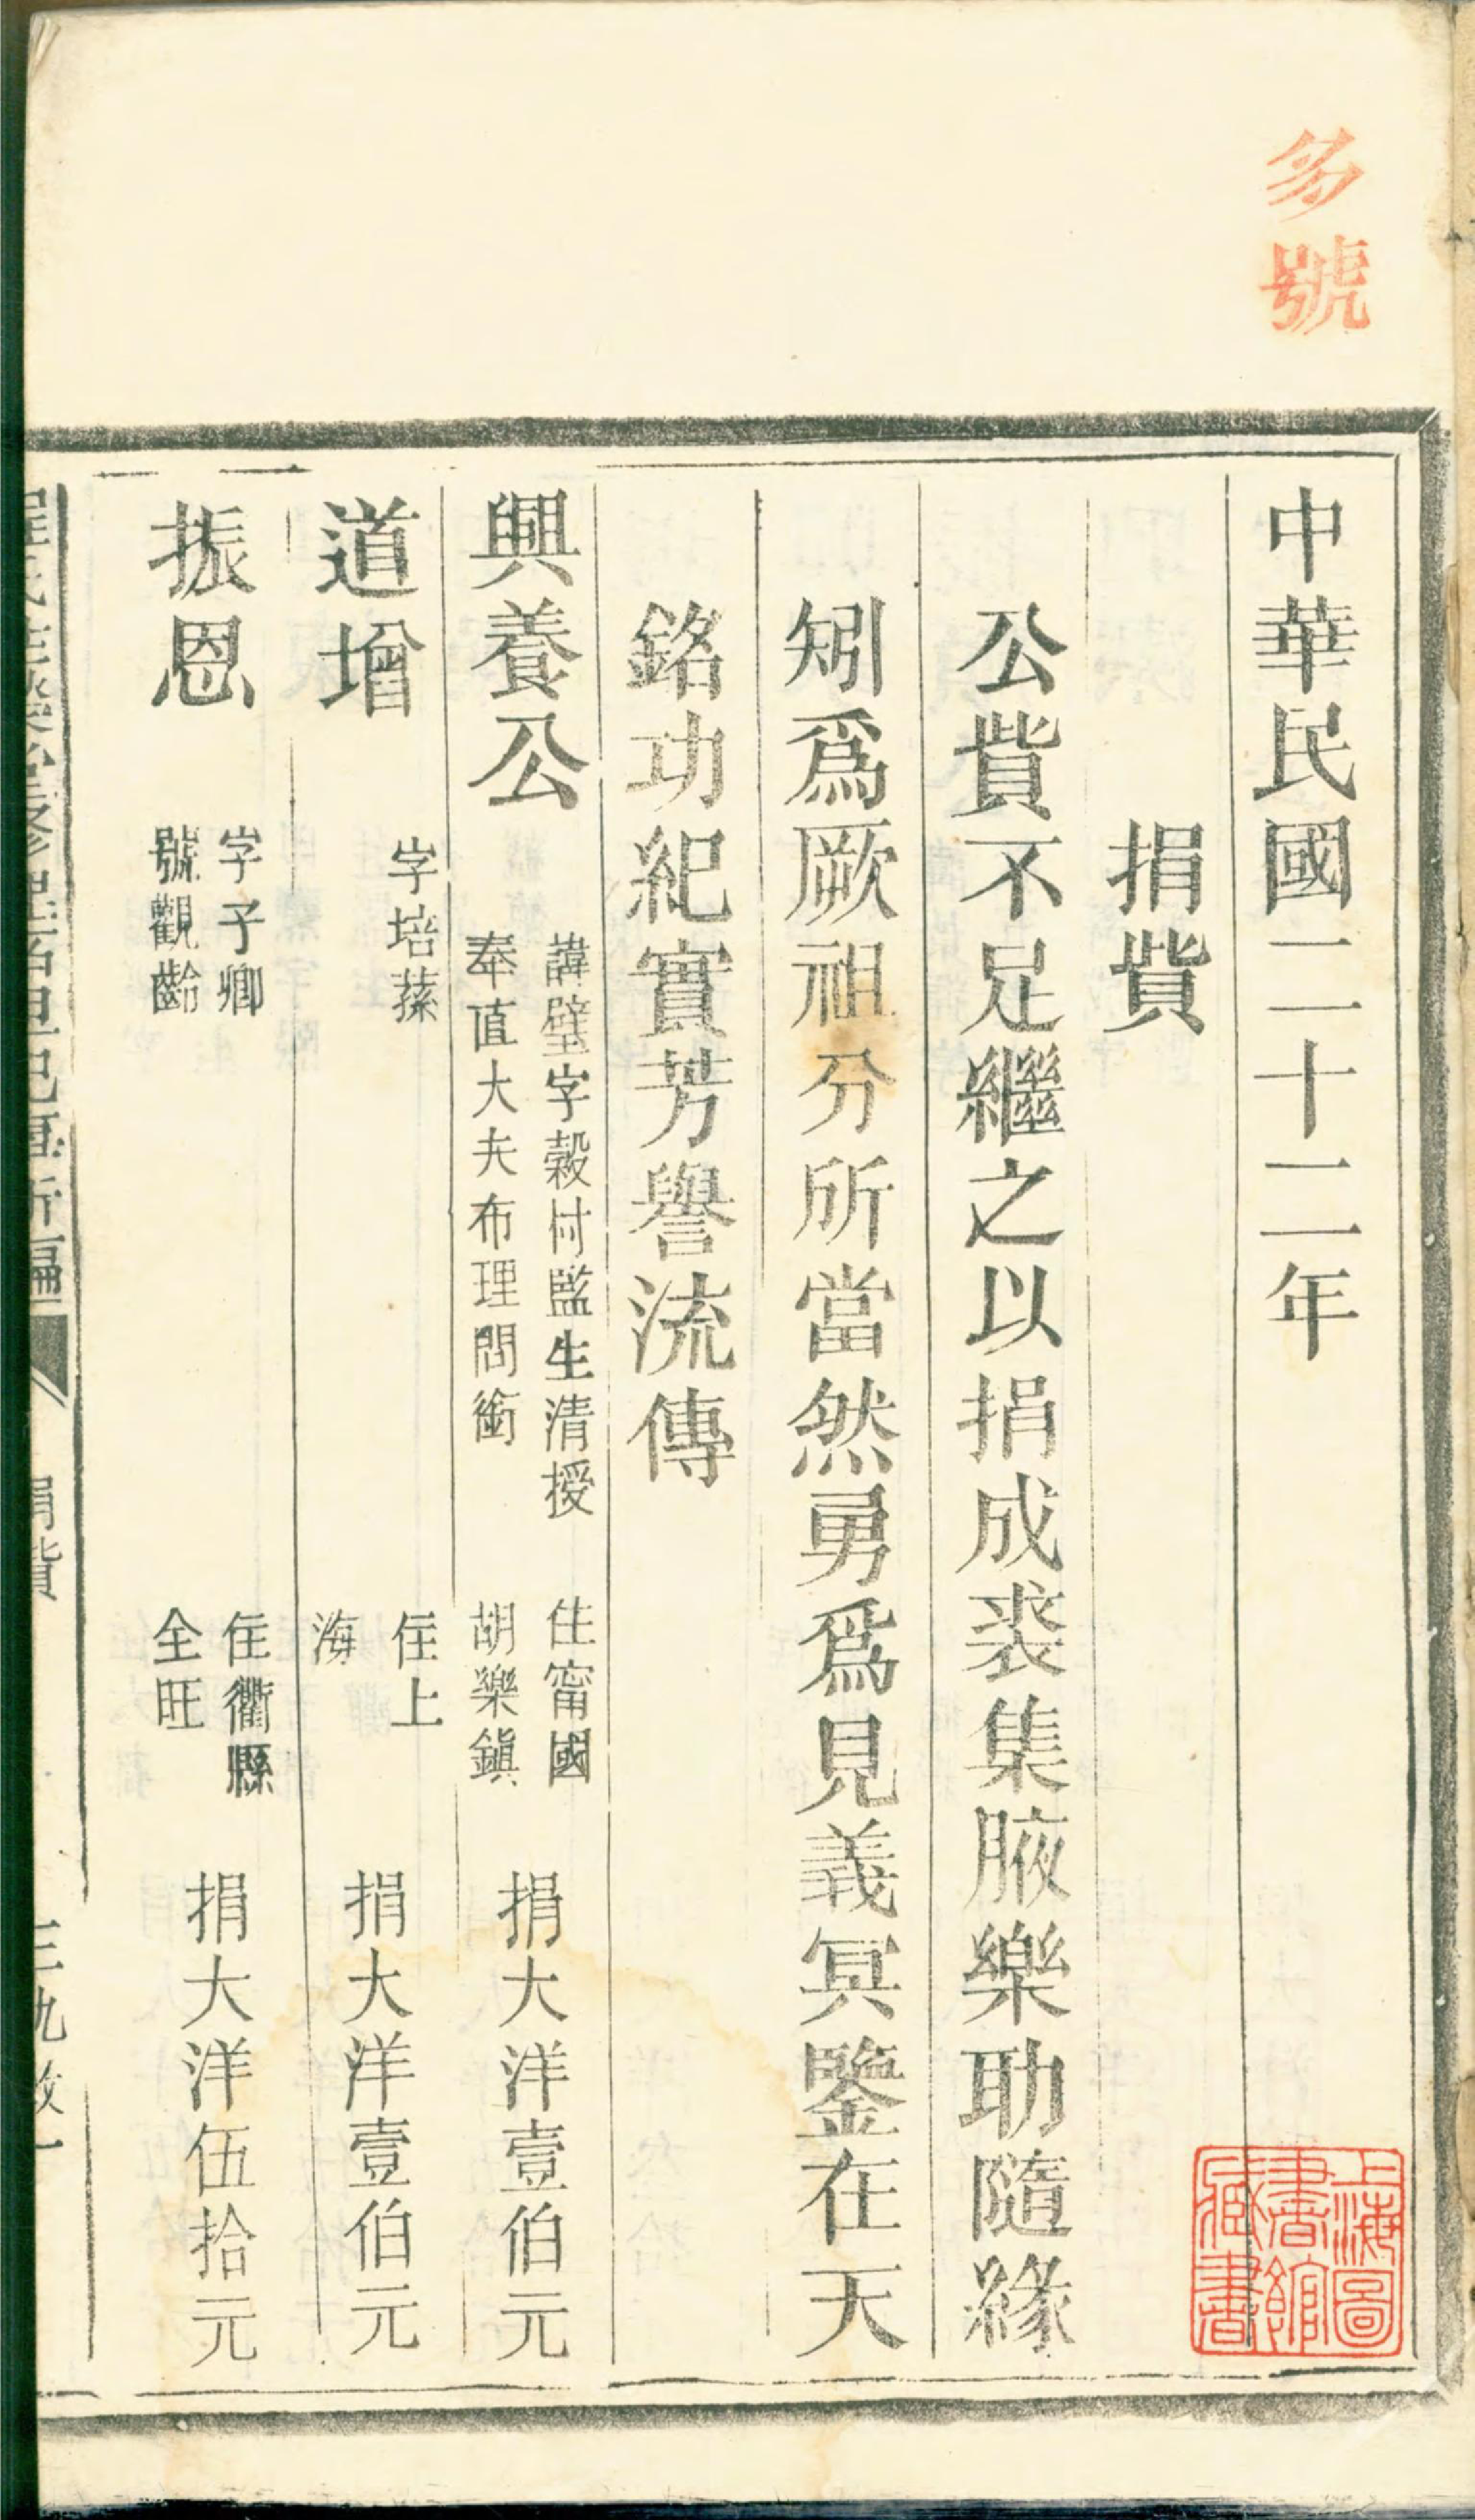 號
中華民國二十二年
捐貲
公貲不足繼之以捐成裘集腋樂助隨緣
矧爲厥祖分所當然勇爲見義冥鑒在天
銘功紀實芳譽流傳
興養公 諱璧字榖付監生清授
奉直大夫布理問銜 住甯國
胡樂鎭 捐大洋壹伯元
道增 字培蓀 住上
海 捐大洋壹伯元
振恩 字子卿
號觀齡 住衢縣
全旺 捐大洋伍拾元
捐貲
上海圖
書館
藏書